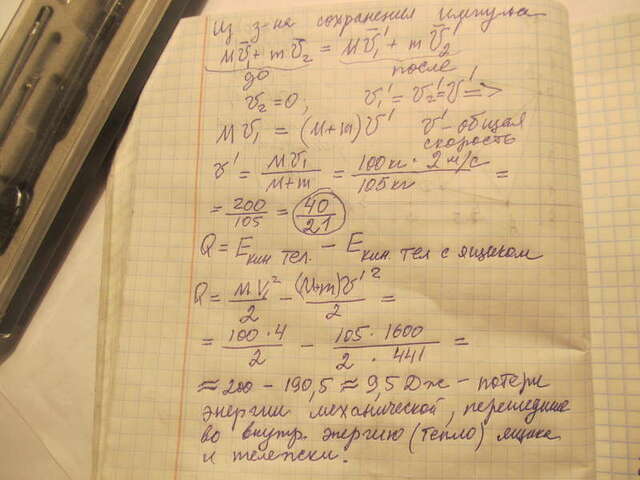 Из з-на сохранения импульса
Mv̄₁ + mv̄₂ = Mv̄₁' + mv̄₂'
до после
v₂ = 0; v₁' = v₂' = v' =>
Mv₁ = (M+m)v' v' - общая
скорость
v' = Mv₁/(M+m) = (100кг · 2 м/с)/105кг =
= 200/105 = 40/21
Q = Eкин тел. - Eкин тел с ящиком
Q = Mv₁²/2 - (M+m)v'²/2 =
= (100 · 4)/2 - (105 · 1600)/(2 · 441) =
≈ 200 - 190,5 ≈ 9,5 Дж - потери
энергии механической, перешедшие
во внутр. энергию (тепло) ящика
и тележки.